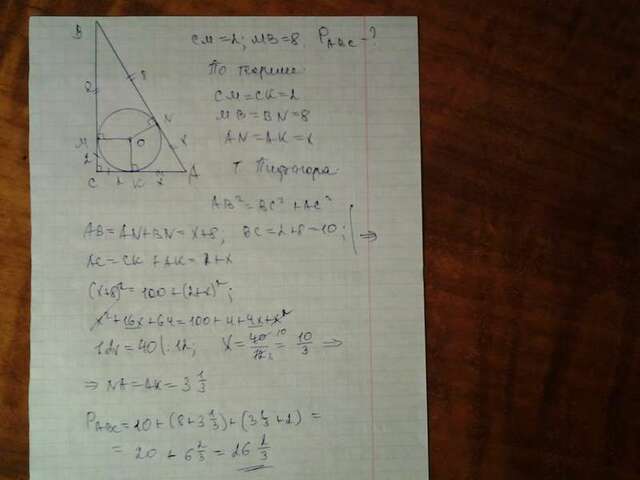 CM=2; MB=8. P_ABC-?
По теореме:
CM=CK=2
MB=BN=8
AN=AK=x
Т. Пифагора:
AB²=BC²+AC²
AB=AN+BN=x+8, BC=2+8=10; ⇒
AC=CK+AK=2+x
(x+8)²=100+(2+x)²;
x²+16x+64=100+4+4x+x²
12x=40|:12; x=40/12=10/3 ⇒
⇒ NA=AK=3 1/3
P_ABC=10+(8+3 1/3)+(3 1/3+2)=
=20+6 2/3=26 2/3
B
8
8
N
M
O
x
2
C
2
K
x
A